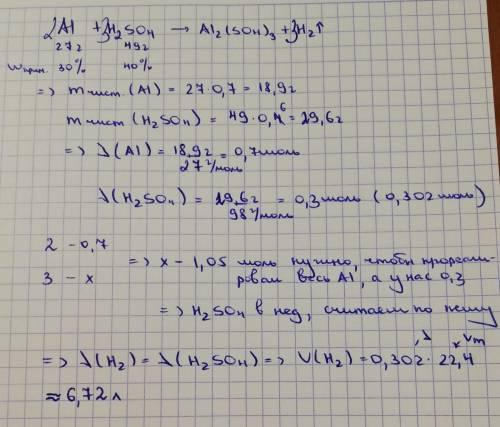 2Al + 3H₂SO₄ → Al₂(SO₄)₃ + 3H₂↑
27г 49г
wприм. 30% 40%
=> m чист. (Al) = 27·0,7 = 18,9г
m чист (H₂SO₄) = 49·0,6 = 29,6г
=> λ(Al) = 18,9г / 27 г/моль = 0,7моль
λ(H₂SO₄) = 29,6г / 98 г/моль = 0,3моль (0,302 моль)
2 - 0,7
3 - x
=> x - 1,05 моль нужно, чтобы прореаги-
ровал весь Al, а у нас 0,3
=> H₂SO₄ в нед, считаем по нему
=> λ(H₂) = λ(H₂SO₄) => V(H₂) = 0,302 · 22,4
λ × Vm
≈ 6,72 л